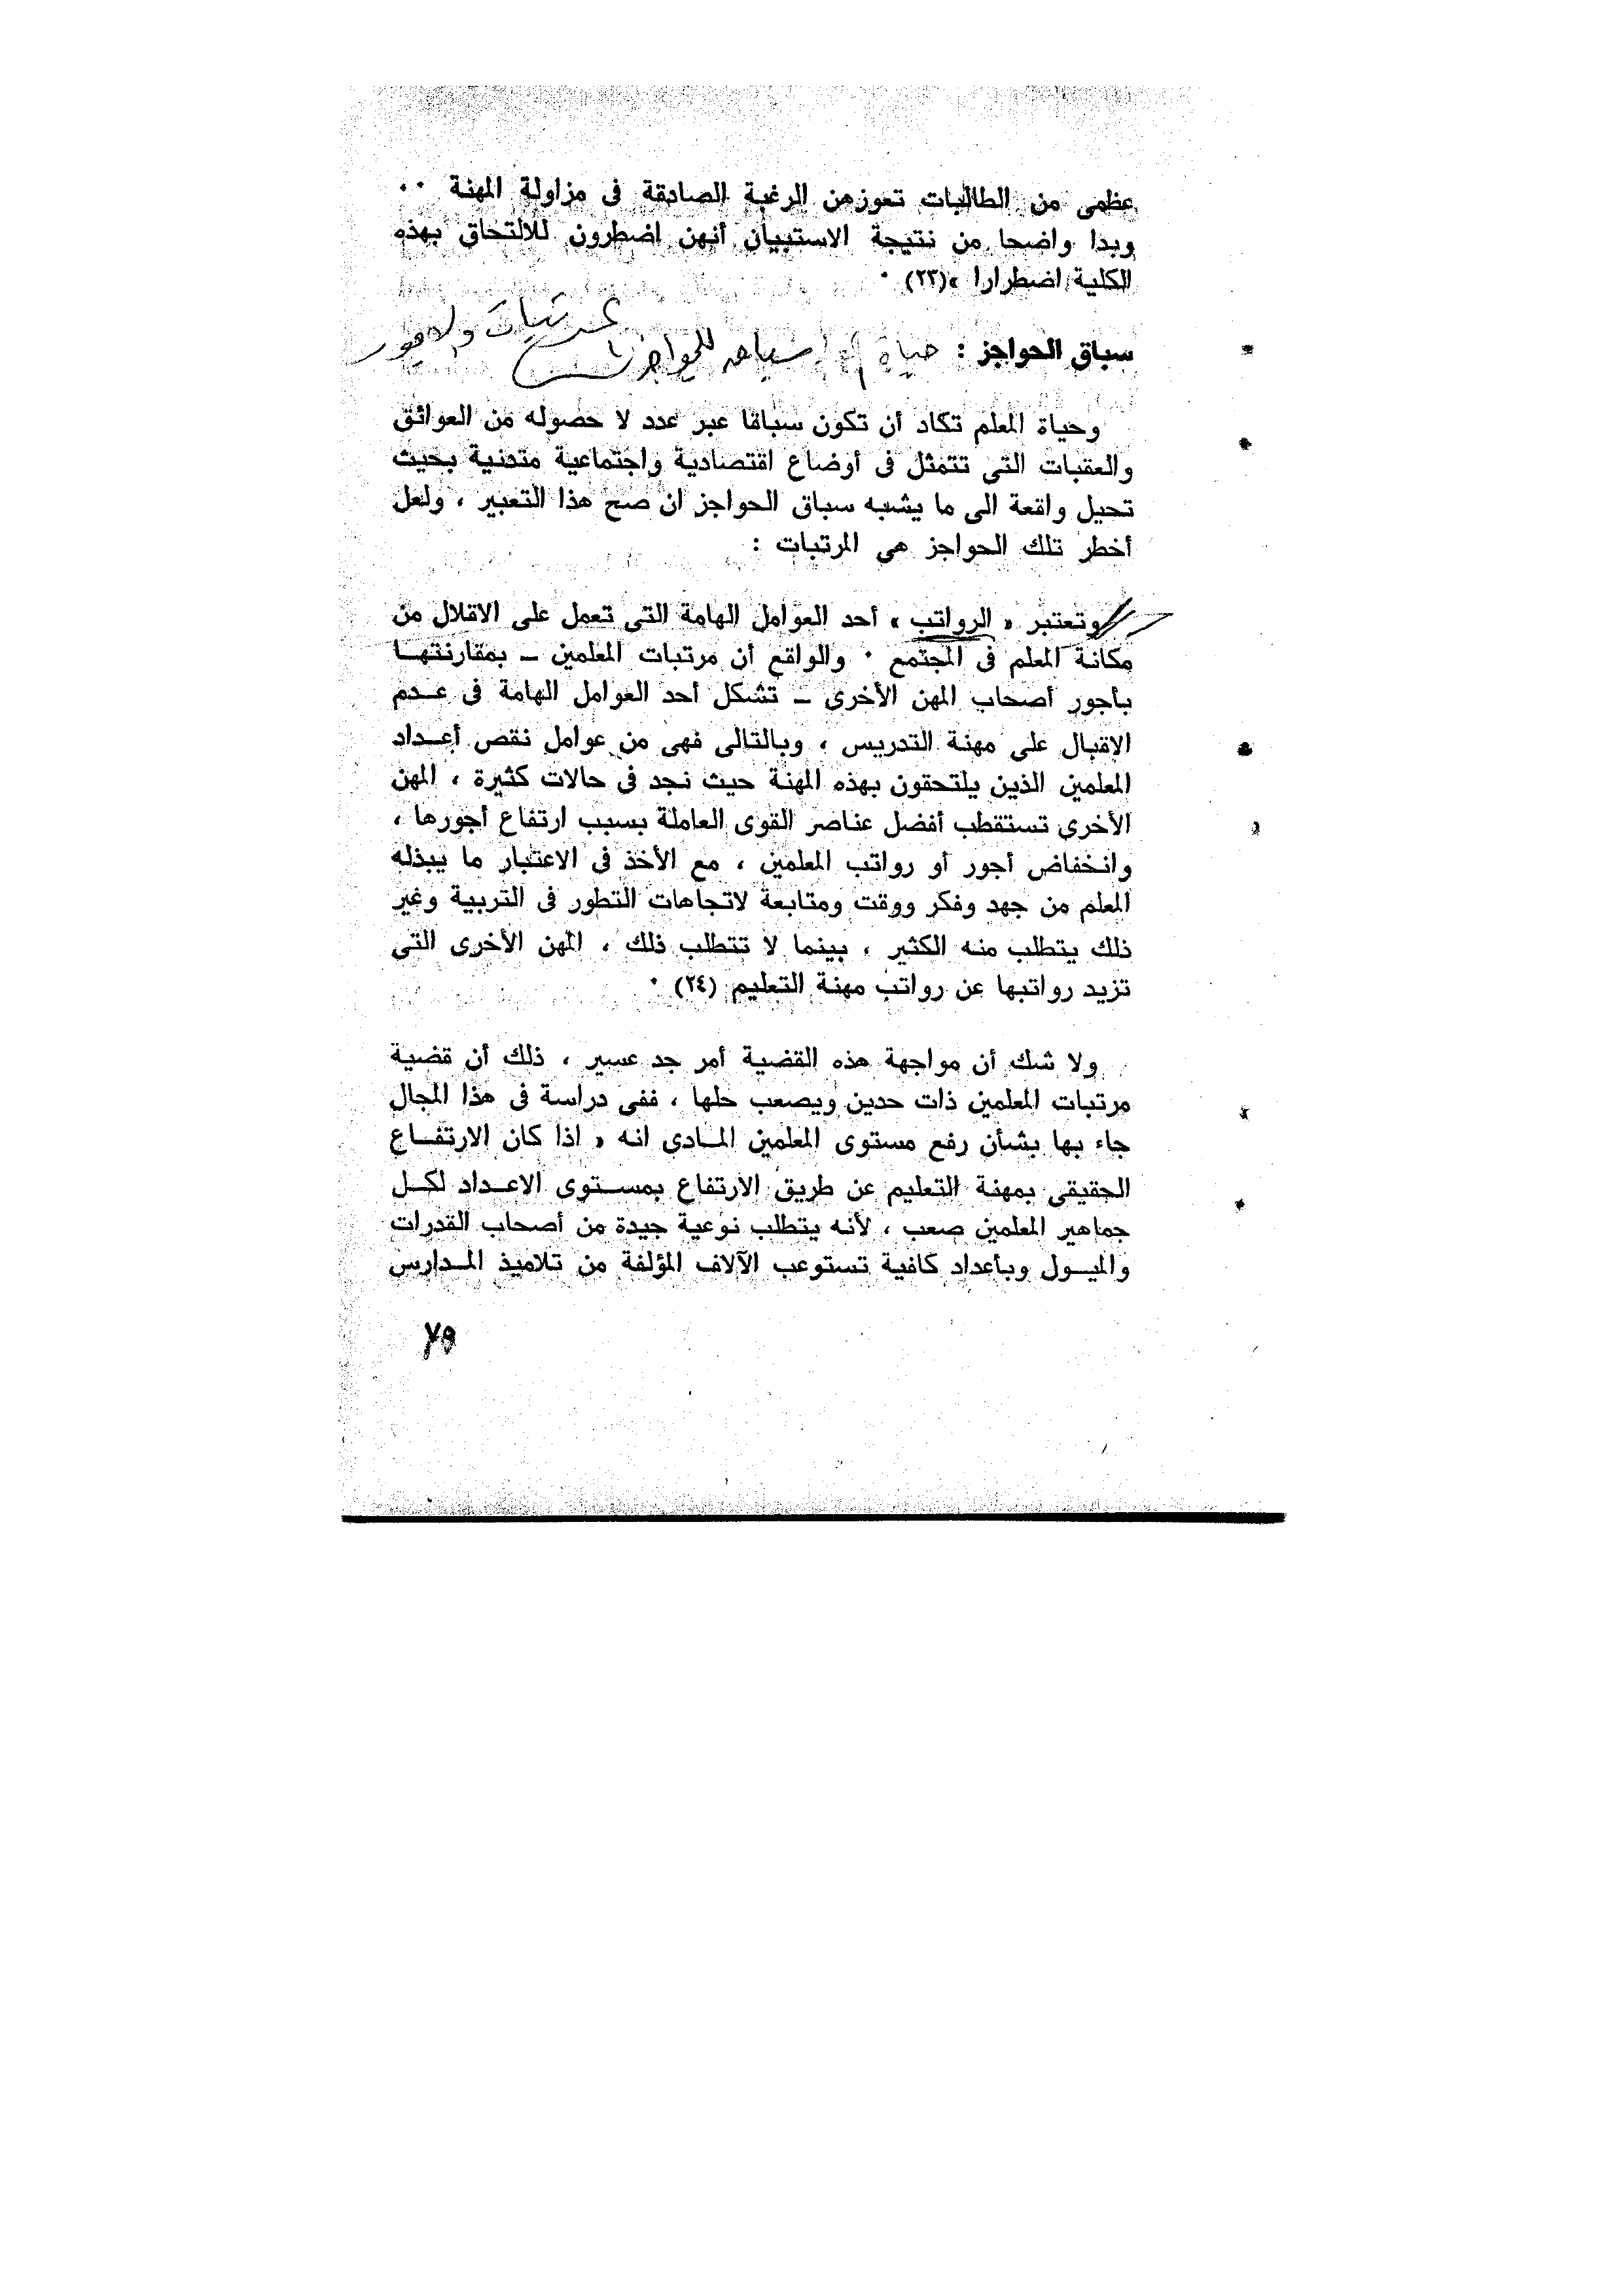 عظمى من الطالبات تعوزهن الرغبة الصادقة فى مزاولة المهنة ٠٠
وبدا واضحا من نتيجة الاستبيان أنهن اضطرون للالتحاق بهذه
الكلية اضطرارا »(٢٣) ٠
سباق الحواجز : حياة سباق للحواجز
مرتبات ولاجور
وحياة المعلم تكاد أن تكون سباقا عبر عدد لا حصوله من العوائق
والعقبات التى تتمثل فى أوضاع اقتصادية واجتماعية متدنية بحيث
تحيل واقعة الى ما يشبه سباق الحواجز ان صح هذا التعبير ، ولعل
أخطر تلك الحواجز هى المرتبات :
وتعتبر « الرواتب » أحد العوامل الهامة التى تعمل على الاقلال من
مكانة المعلم فى المجتمع ٠ والواقع أن مرتبات المعلمين ـ بمقارنتهـا
بأجور أصحاب المهن الأخرى ـ تشكل أحد العوامل الهامة فى عـدم
الاقبال على مهنة التدريس ، وبالتالى فهى من عوامل نقص أعـداد
المعلمين الذين يلتحقون بهذه المهنة حيث نجد فى حالات كثيرة ، المهن
الأخرى تستقطب أفضل عناصر القوى العاملة بسبب ارتفاع أجورها ،
وانخفاض أجور أو رواتب المعلمين ، مع الأخذ فى الاعتبار ما يبذله
المعلم من جهد وفكر ووقت ومتابعة لاتجاهات التطور فى التربية وغير
ذلك يتطلب منه الكثير ، بينما لا تتطلب ذلك ، المهن الأخرى التى
تزيد رواتبها عن رواتب مهنة التعليم (٢٤) ٠
ولا شك أن مواجهة هذه القضية أمر جد عسير ، ذلك أن قضية
مرتبات المعلمين ذات حدين ويصعب حلها ، ففى دراسة فى هذا المجال
جاء بها بشأن رفع مستوى المعلمين المـادى انه « اذا كان الارتفـاع
الحقيقى بمهنة التعليم عن طريق الارتفاع بمسـتوى الاعـداد لكـل
جماهير المعلمين صعب ، لأنه يتطلب نوعية جيدة من أصحاب القدرات
والميـول وبأعداد كافية تستوعب الآلاف المؤلفة من تلاميذ المـدارس
٧٩